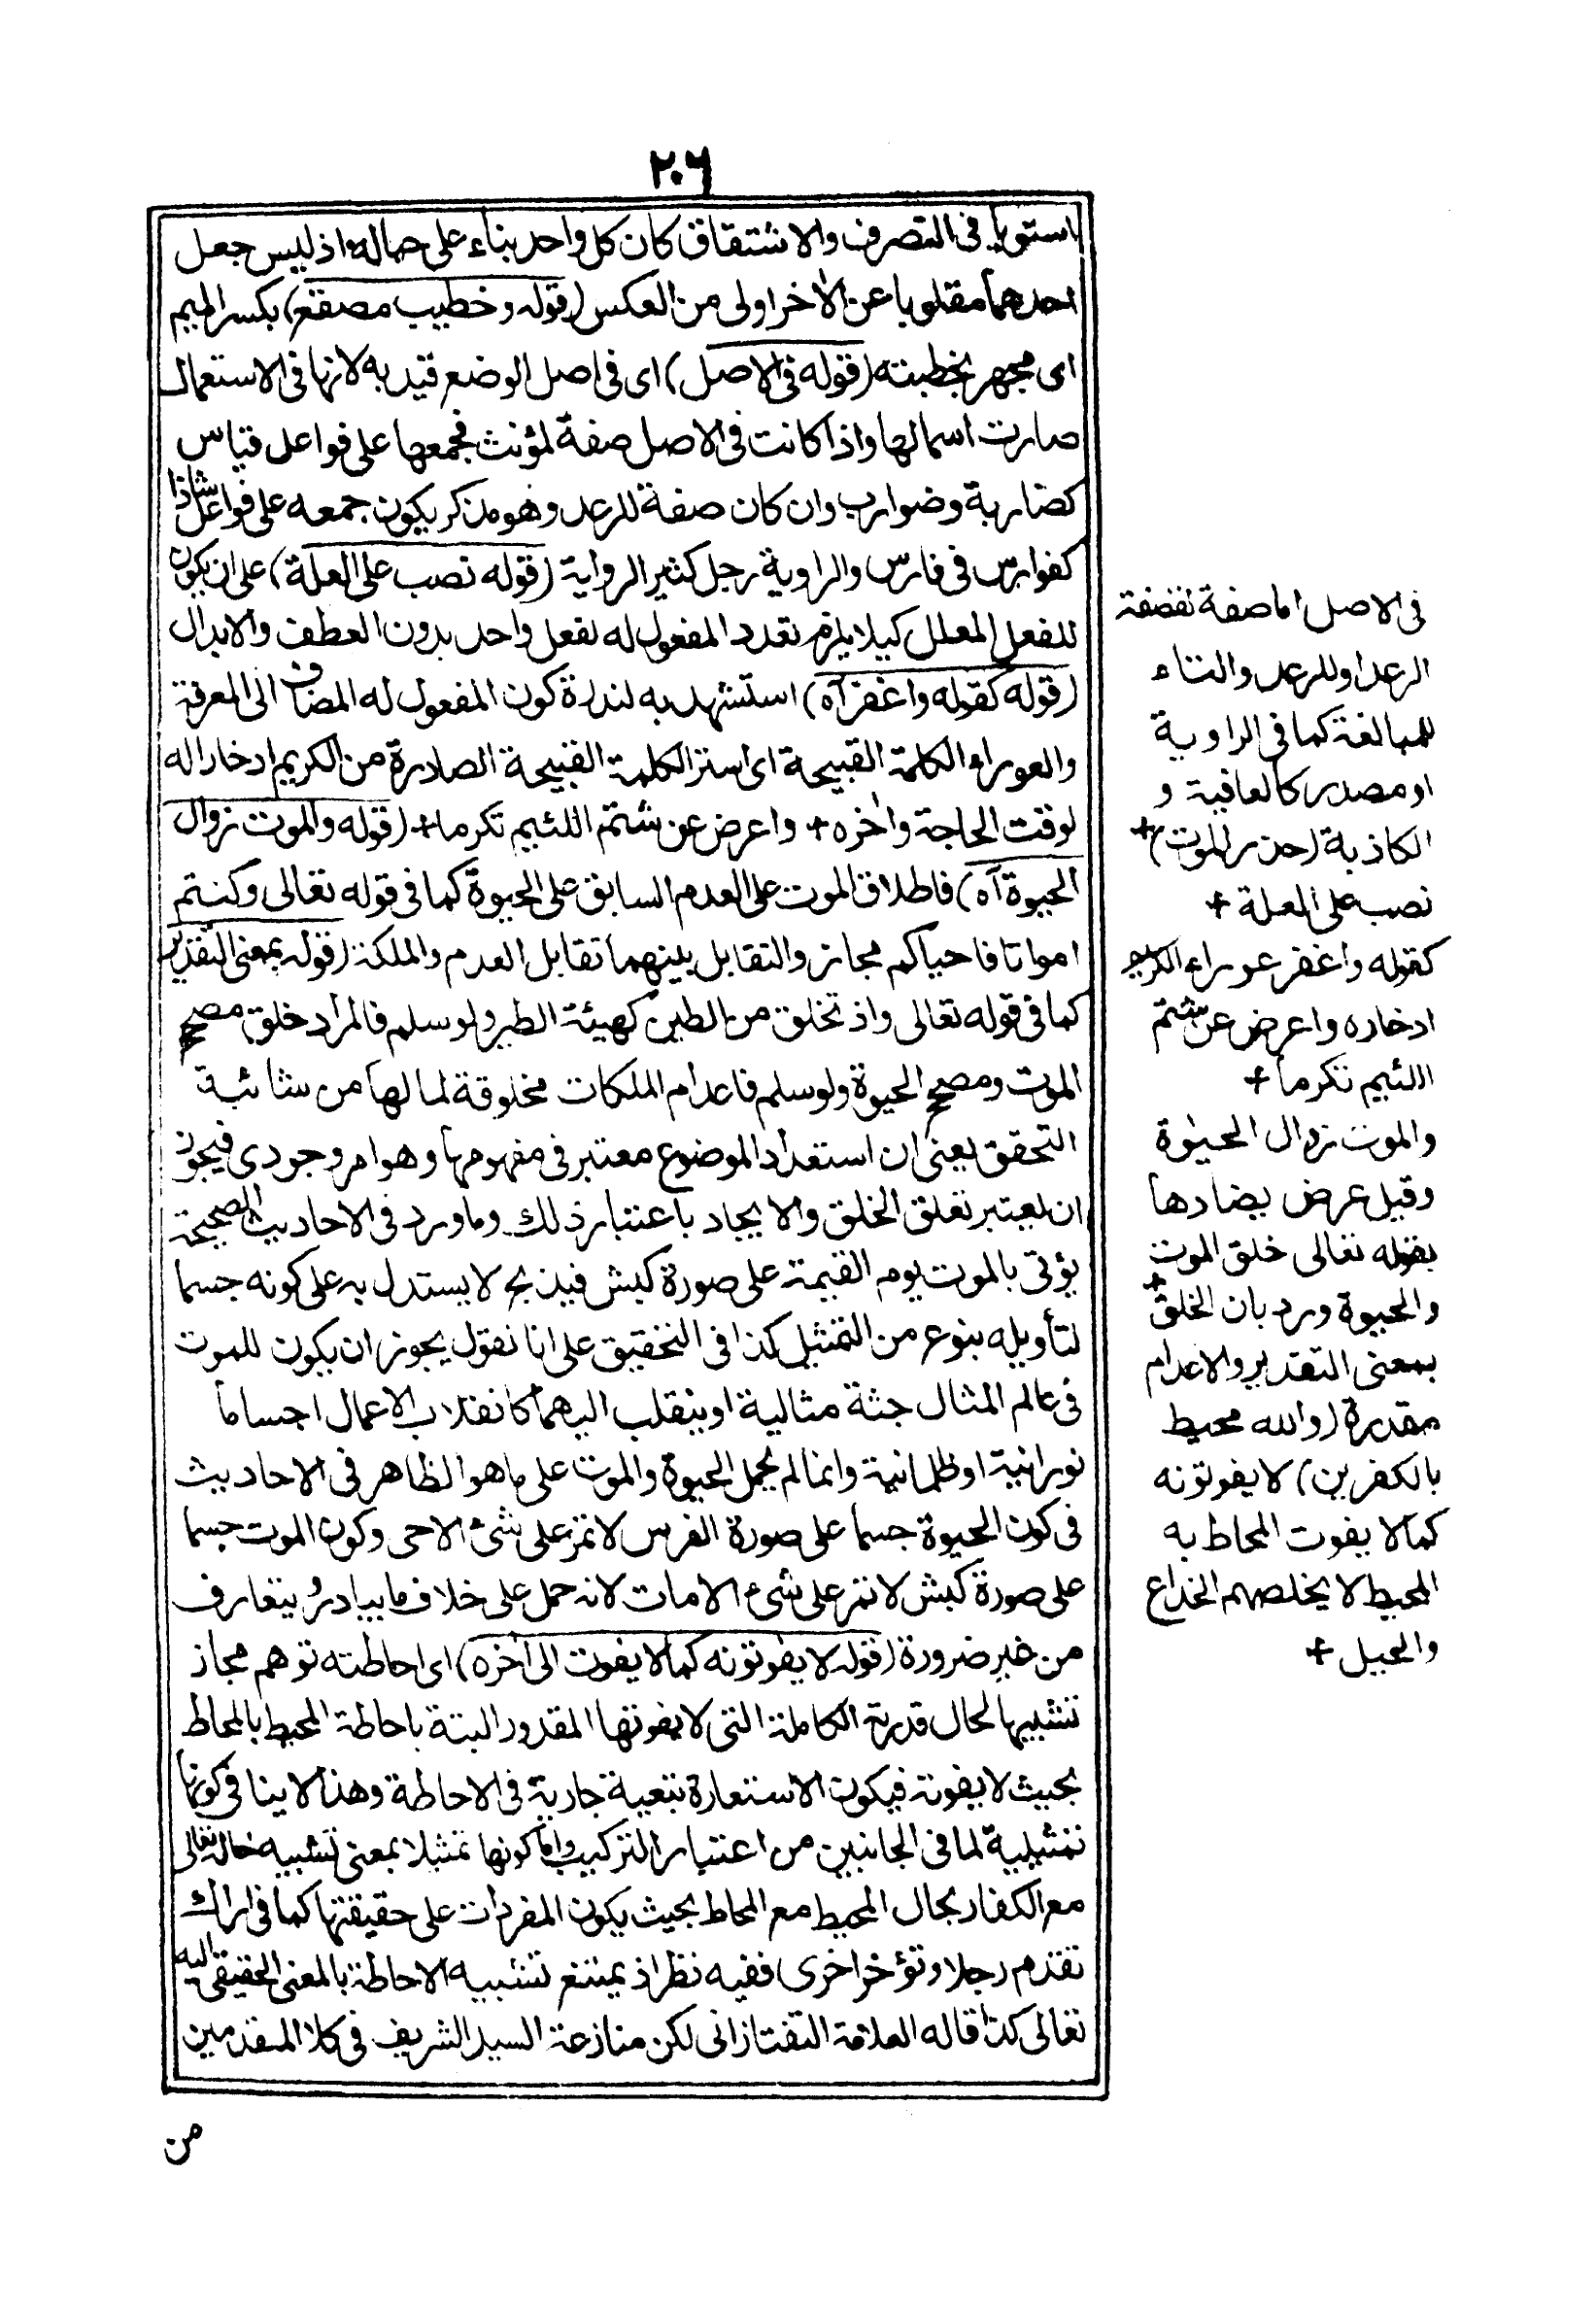 ٢٠٦
استويا فى التصرف والاشتقاق كان كل واحد بناء على حياله اذ ليس جعل
احدهما مقلوبا عن الاخر اولى من العكس (قوله وخطيب مصقع) بكسر الميم
اى مجهر بخطبته (قوله فى الاصل) اى فى اصل الوضع قيد به لانها فى الاستعمال
صارت اسما لها واذا كانت فى الاصل صفة لمؤنث فجمعها على فواعل قياس
كضاربة وضوارب وان كان صفة للرعد وهو مذكر يكون جمعه على فواعل شاذا
كفوارس فى فارس والراوية رجل كثير الرواية (قوله نصب على العلة) على ان يكون
للفعل المعلل كيلا يلزم تعدد المفعول له لفعل واحد بدون العطف والابدال
(قوله كقوله واغفر آه) استشهد به لندرة كون المفعول له المضاف الى المعرفة
والعوراء الكلمة القبيحة اى استر الكلمة القبيحة الصادرة من الكريم ادخارا له
لوقت الحاجة واخره + واعرض عن شتم اللئيم تكرما + (قوله والموت زوال
الحيوة آه) فاطلاق الموت على العدم السابق على الحيوة كما فى قوله تعالى وكنتم
امواتا فاحياكم مجاز والتقابل بينهما تقابل العدم والملكة (قوله بمعنى التقدير
كما فى قوله تعالى واذ تخلق من الطين كهيئة الطير ولو سلم فالمراد خلق مصحح
الموت ومصحح الحيوة ولو سلم فاعدام الملكات مخلوقة لما لها من شائبة
التحقق يعنى ان استعداد الموضوع معتبر فى مفهومها وهو امر وجودى فيجوز
ان يعتبر تعلق الخلق والايجاد باعتبار ذلك وما ورد فى الاحاديث الصحيحة
يؤتى بالموت يوم القيمة على صورة كبش فيذبح لا يستدل به على كونه جسما
لتأويله بنوع من التمثيل كذا فى التحقيق على انا نقول يجوز ان يكون للموت
فى عالم المثال جثة مثالية او ينقلب اليهما كانقلاب الاعمال اجساما
نورانية او ظلمانية وانما لم يحمل الحيوة والموت على ما هو الظاهر فى الاحاديث
فى كون الحيوة جسما على صورة الفرس لا تمر على شئ الا حى وكون الموت جسما
على صورة كبش لا تمر على شئ الا مات لانه حمل على خلاف ما يبادر ويتعارف
من غير ضرورة (قوله لا يفوتونه كما لا يفوت الى اخره) اى احاطته توهم مجاز
تشبيها لحال قدرته الكاملة التى لا يفوتها المقدور البتة باحاطة المحيط بالمحاط
بحيث لا يفوته فيكون الاستعارة تبعية جارية فى الاحاطة وهذا لا ينافى كونها
تمثيلية لما فى الجانبين من اعتبار التركيب واما كونها تمثيلا بمعنى تشبيه حاله تعالى
مع الكفار بحال المحيط مع المحاط بحيث يكون المفردات على حقيقتها كما فى اراك
تقدم رجلا وتؤخر اخرى) ففيه نظر اذ يمتنع تشبيه الاحاطة بالمعنى الحقيقى اليه
تعالى كذا قاله العلامة التفتازانى لكن منازعة السيد الشريف فى كلا المقدمين
من
فى الاصل اما صفة لقصفة
الرعد او للرعد والتاء
للمبالغة كما فى الراوية
او مصدر كالعافية و
الكاذبة (حذر الموت) +
نصب على العلة +
كقوله واغفر عوراء الكريم
ادخاره واعرض عن شتم
اللئيم تكرما +
والموت زوال الحيوة
وقيل عرض يضادها
بقوله تعالى خلق الموت
والحيوة ورد بان الخلق +
بمعنى التقدير والاعدام
مقدرة (والله محيط
بالكفرين) لا يفوتونه
كما لا يفوت المحاط به
المحيط لا يخلصهم الخداع
والحيل +